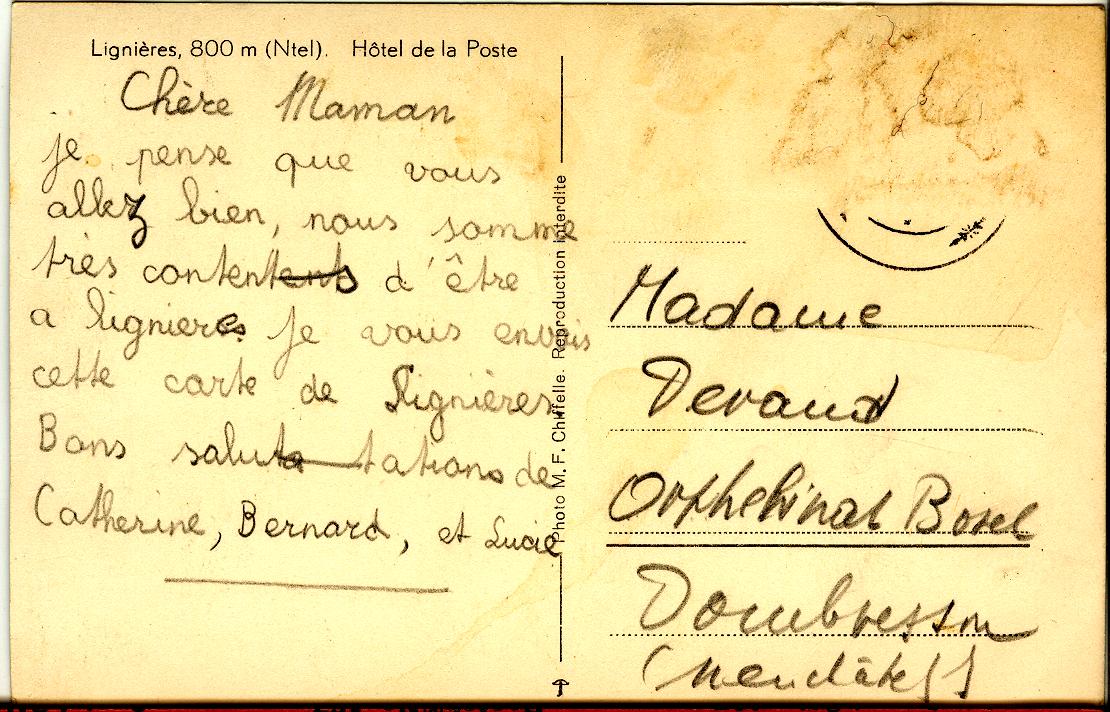 Lignières, 800 m (Ntel). Hôtel de la Poste
Chère Maman
je pense que vous
allez bien, nous somme
très content d'être
a lignieres je vous envois
cette carte de Lignières
Bons salutations de
Catherine, Bernard, et Lucie
Photo M. F. Chiffelle. Reproduction interdite
Madame
Devaud
Orphelinat Borel
Dombresson
(Neuchâtel)